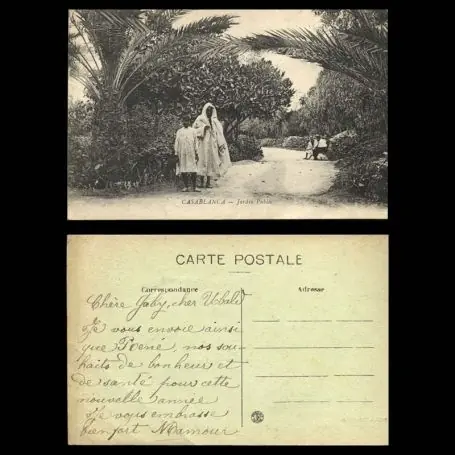 CASABLANCA — Jardin Public
CARTE POSTALE
Correspondance
Adresse
Chère Gaby, cher Ubald
Je vous envoie ainsi
que nos sou-
haits de bonheur et
de santé pour cette
nouvelle année
Je vous embrasse
bien fort